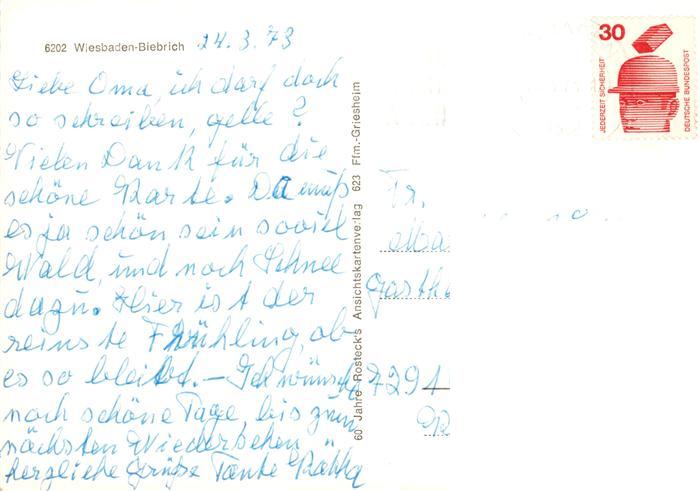 6202 Wiesbaden-Biebrich 24.3.73
Liebe Oma, ich darf doch
so schreiben, gelle?
Vielen Dank für die
schöne Karte. Da muß
es ja schön sein soviel
Wald, und noch Schnee
dazu. Hier ist der
reinste Frühling, ob
es so bleibt. – Ich wünsche
noch schöne Tage, bis zum
nächsten Wiedersehen,
herzliche Grüße Tante
60 Jahre Rosteck's Ansichtskartenverlag 623 Ffm.-Griesheim
30
JEDERZEIT SICHERHEIT
DEUTSCHE BUNDESPOST
Fr.
Gasth
7291